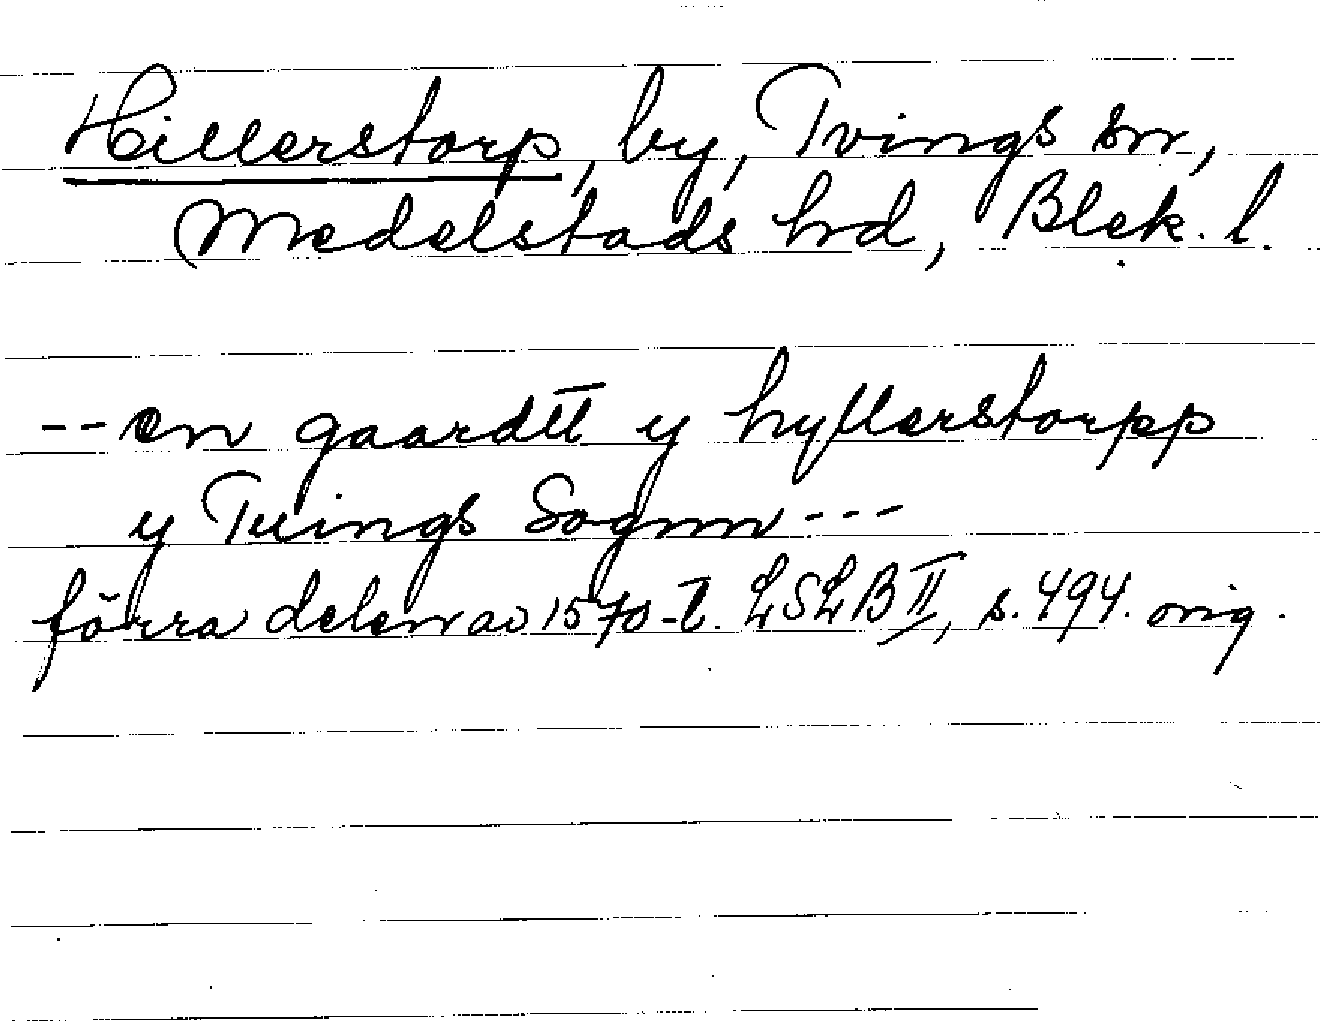 Hillerstorp, by, Tvings sn,
Medelstads hd, Blek. l.
-- en gaardtt y hyllerstorpp
y Tuings Sognn ---
förra delen av 1570-t. LSLB II, s. 494. orig.